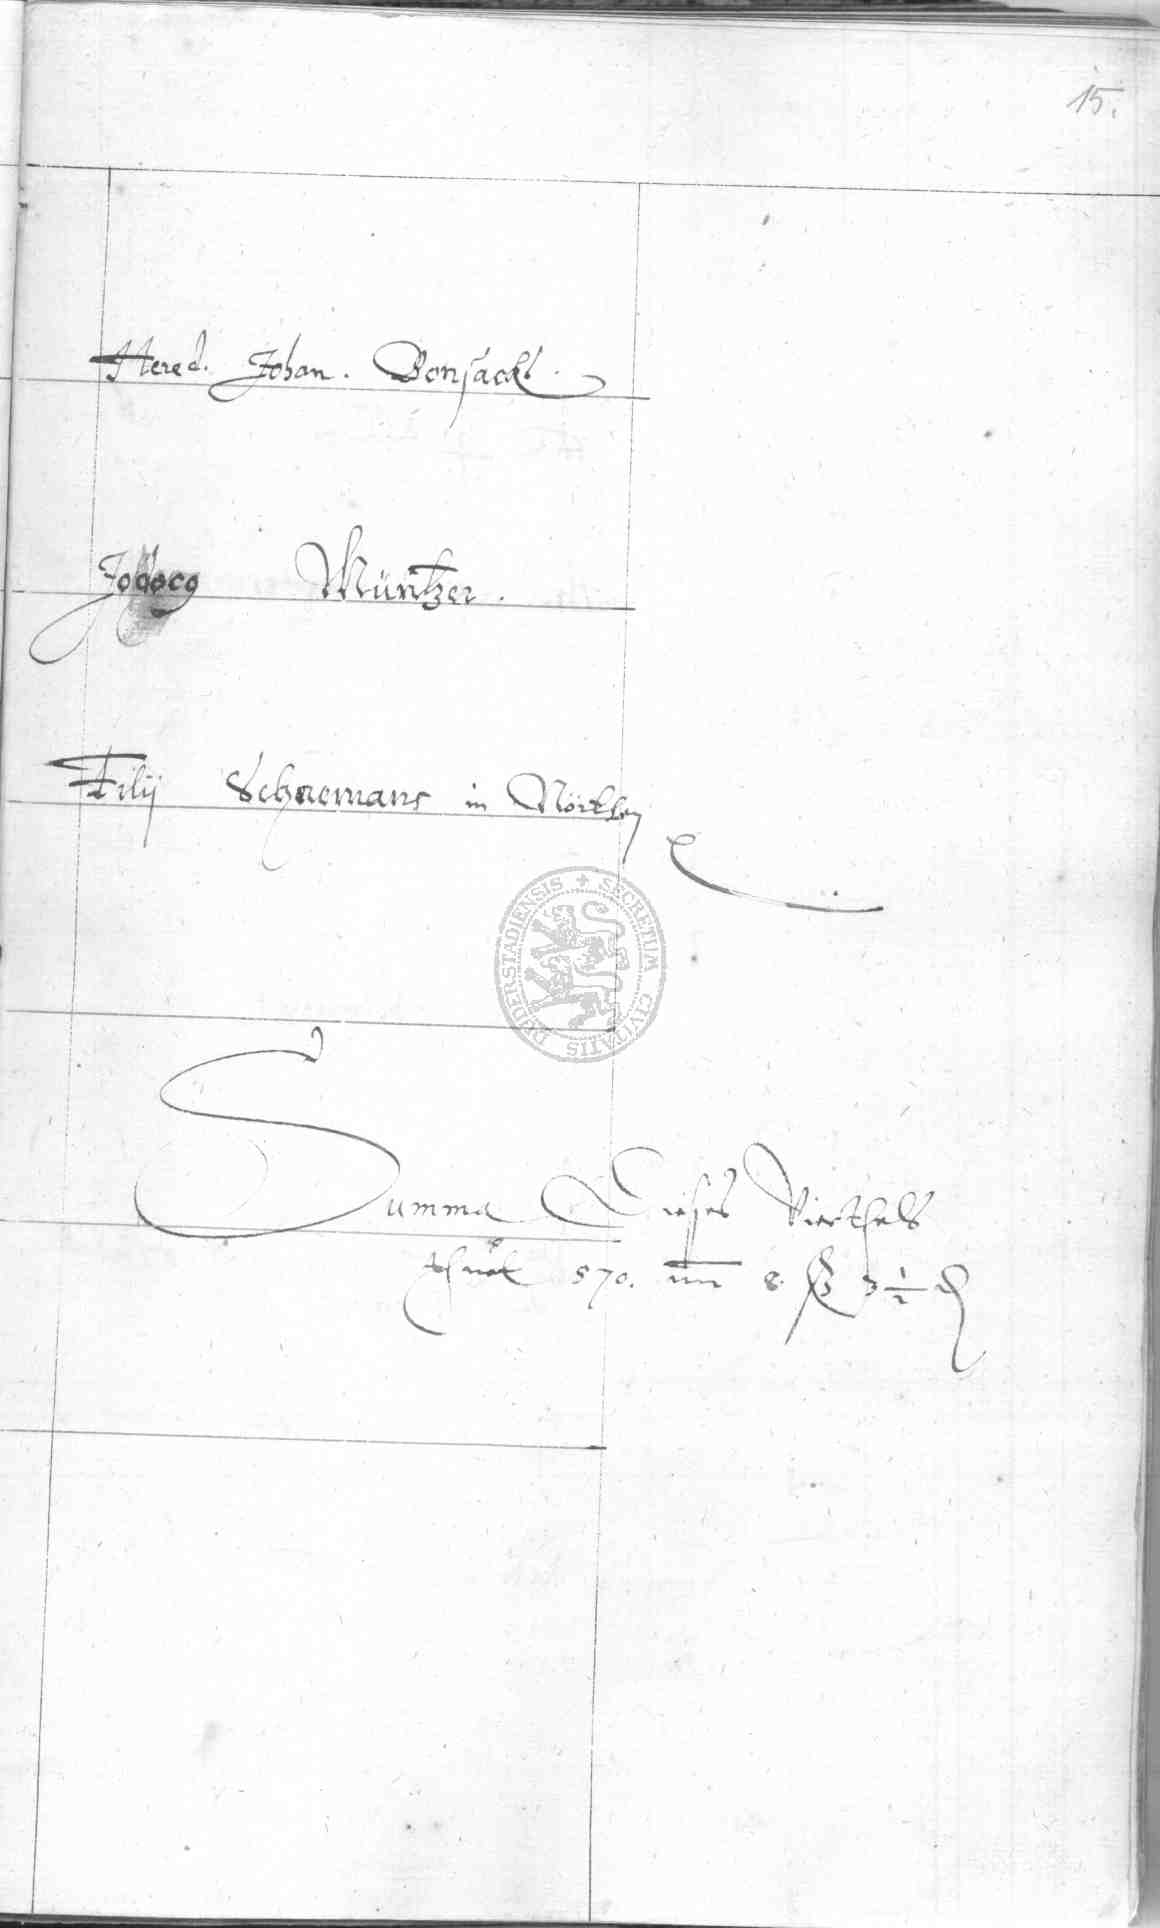 15.
Hered. Johan. Bonsack
Jodocus Müntzer.
Filij Schnemans in Nörthen
SECRETUM CIVITATIS DUDERSTADIENSIS
Summa Dieses Vierthels
thuet 570. 8. ß 3 1/2 ₰